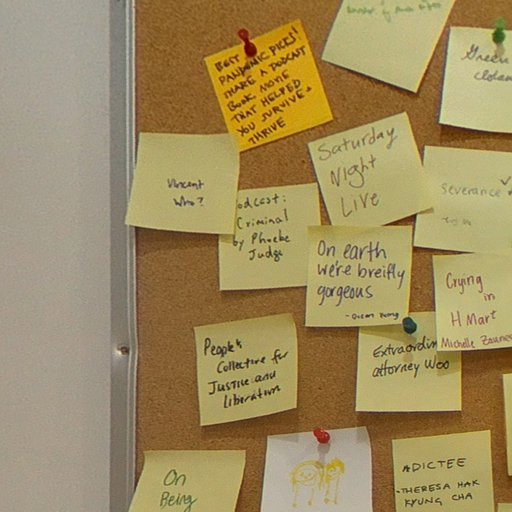 BEST
PANDEMIC PICKS!
SHARE A PODCAST
BOOK MOVIE
THAT HELPED
YOU SURVIVE +
THRIVE
Green
Saturday
Night
Live
Vincent
Who?
odcast:
Criminal
by Phoebe
Judge
Severance
On earth
we're breifly
gorgeous
- Ocean Vuong
Crying
in
H Mart
Michelle Zauner
People's
Collective for
Justice and
Liberation
Extraordin
attorney Woo
On
Being
ADICTEE
-THERESA HAK
KYUNG CHA